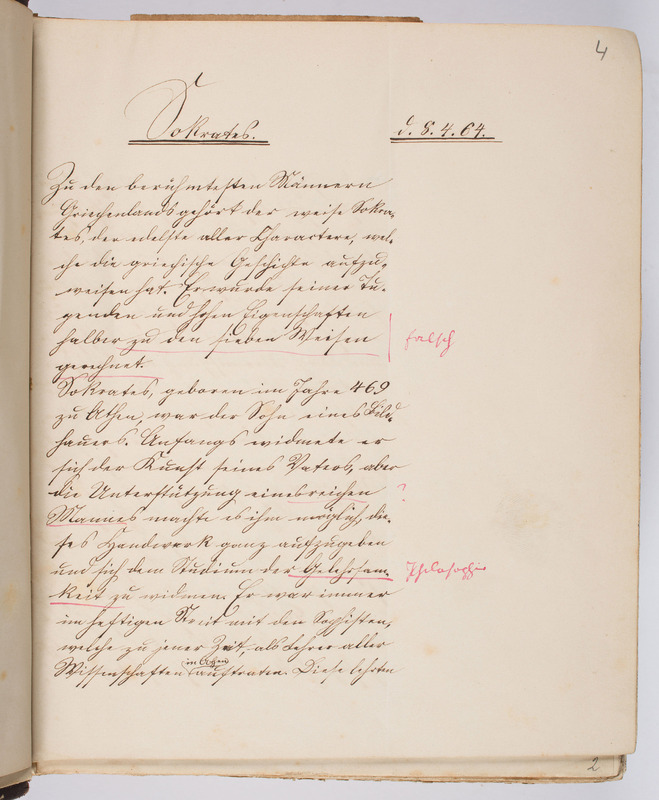 4
Sokrates. d. 8. 4. 64.
Zu den berühmtesten Männern
Griechenlands gehört der weise Sokra-
tes, der edelste aller Charactere, wel-
che die griechische Geschichte aufzu-
weisen hat. Er wurde seiner Tu-
genden und hohen Eigenschaften
halber zu den sieben Weisen falsch
gerechnet.
Sokrates, geboren im Jahre 469
zu Athen, war der Sohn eines Bild-
hauers. Anfangs widmete er
sich der Kunst seines Vaters, aber
die Unterstützung eines reichen ?
Mannes machte es ihm möglich, die-
ses Handwerk ganz aufzugeben
und sich dem Studium der Gelehrsam- Philosophie
keit zu widmen. Er war immer
im heftigen Streit mit den Sophisten,
welche zu jener Zeit, als Lehrer aller
Wissenschaften in Athen auftraten. Diese lehrten
2